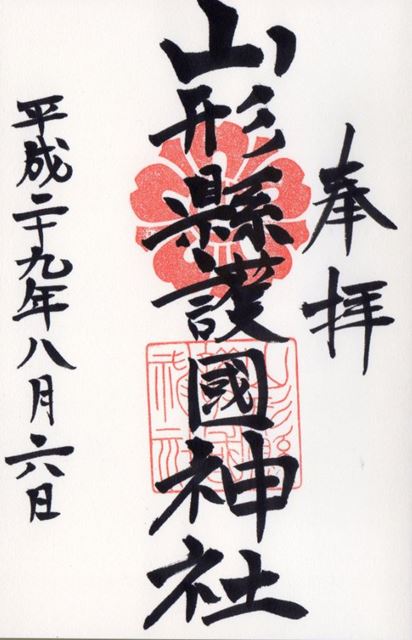 奉拝
山形縣護國神社
平成二十九年八月六日